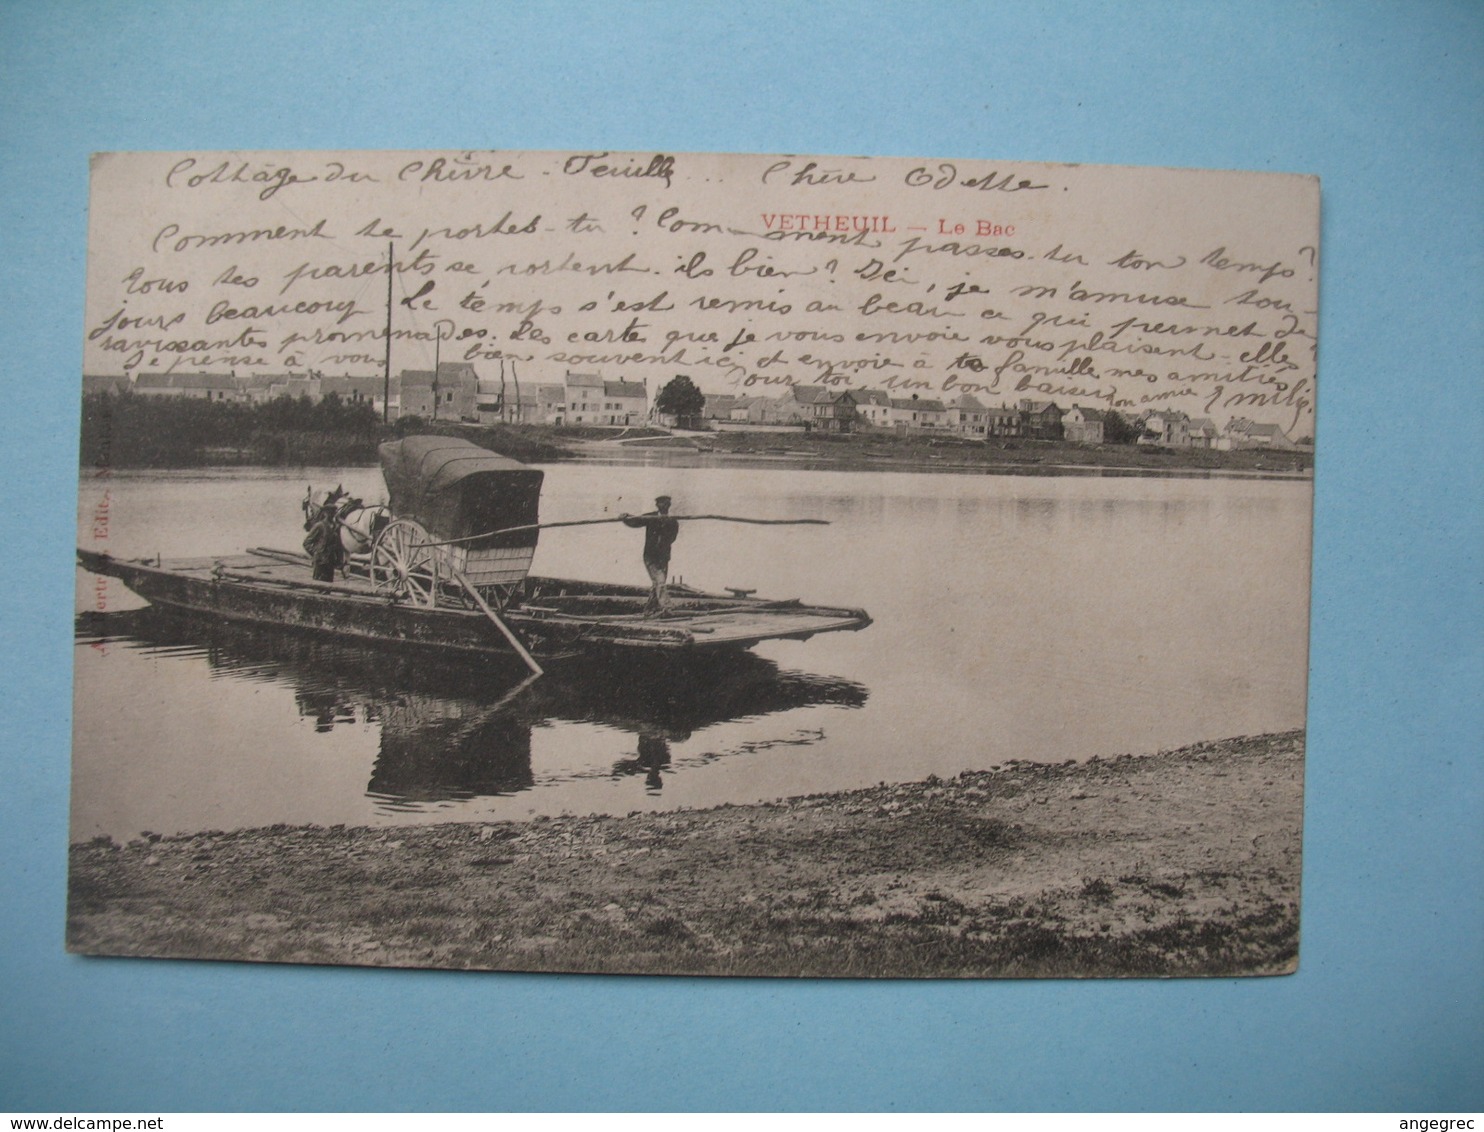 Cottage du Chèvre-Feuille... Chère Odette.
VETHEUIL — Le Bac
Comment te portes-tu? Com-ment passes-tu ton temps?
Tous tes parents se portent-ils bien? Ici, je m'amuse tou-
jours beaucoup Le temps s'est remis au beau ce qui permet de
ravissantes promenades. Les cartes que je vous envoie vous plaisent-elles?
Je pense à vous bien souvent ici et envoie à ta famille mes amitiés
Pour toi, un bon baiser Ton amie
Edit.
delcampe.net
angegrec